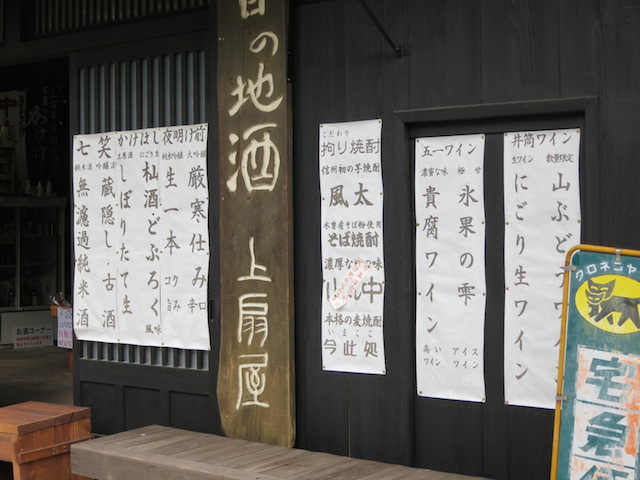 の地酒 上扇屋
夜明け前
大吟醸
厳寒仕み
辛口
純米吟醸
生一本
コク
旨み
かけはし
にごり生
杣酒・どぶろく
風味
生原酒
しぼりたて生
七笑
吟醸酒
蔵隠し・古酒
純米酒
無濾過純米酒
お酒コーナー
こだわり
拘り焼酎
信州初の芋焼酎
風太
木曽産そば粉使用
そば焼酎
濃厚な
の味
中
本格の麦焼酎
いまここ
今此処
五一ワイン
極甘
氷果の雫
アイス
ワイン
濃蜜な味
貴腐ワイン
高い
ワイン
井筒ワイン
数量限定
山ぶどう
生ワイン
にごり生ワイン
クロネコヤ
宅急